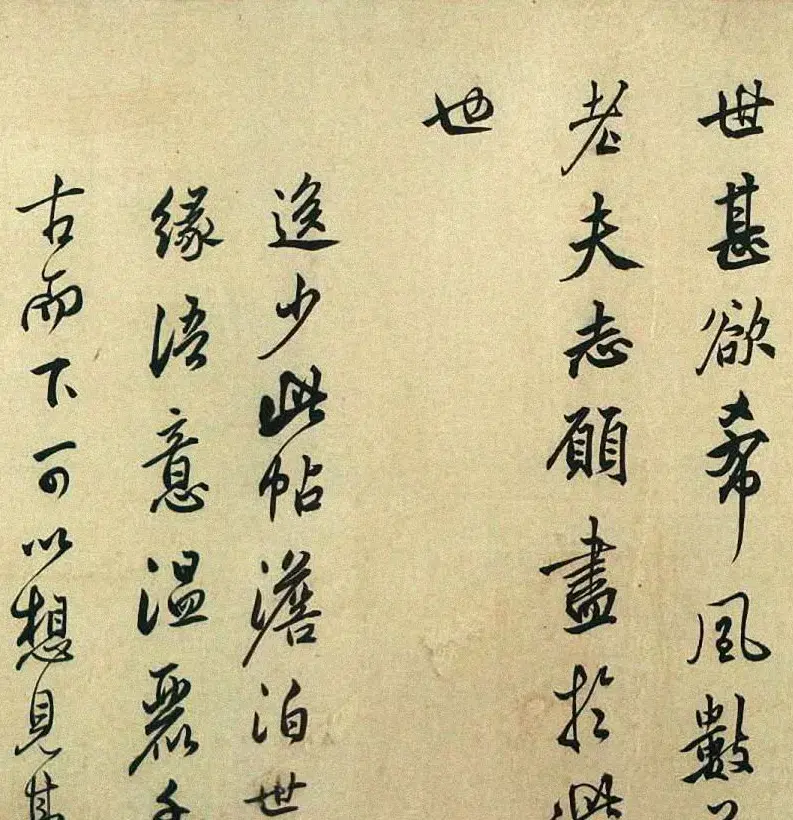 世甚欲希風數
老夫志願盡於此
也
逸少此帖澹泊世
緣語意溫麗千
古而下可以想見其